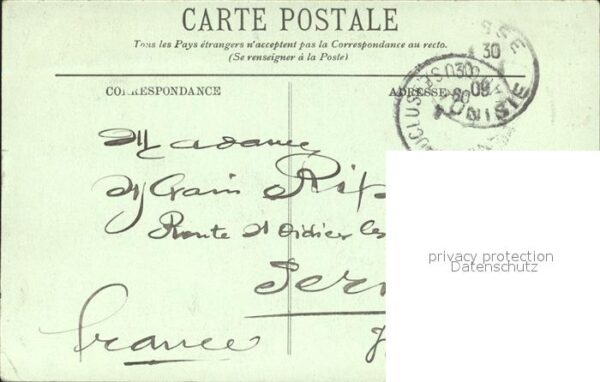 CARTE POSTALE
Tous les Pays étrangers n'acceptent pas la Correspondance au recto.
(Se renseigner à la Poste)
CORRESPONDANCE
ADRESSE
SSE
30
30
09
TUNISIE
Madame
Sylvain Rip
Route St Didier les
Per
France
privacy protection
Datenschutz